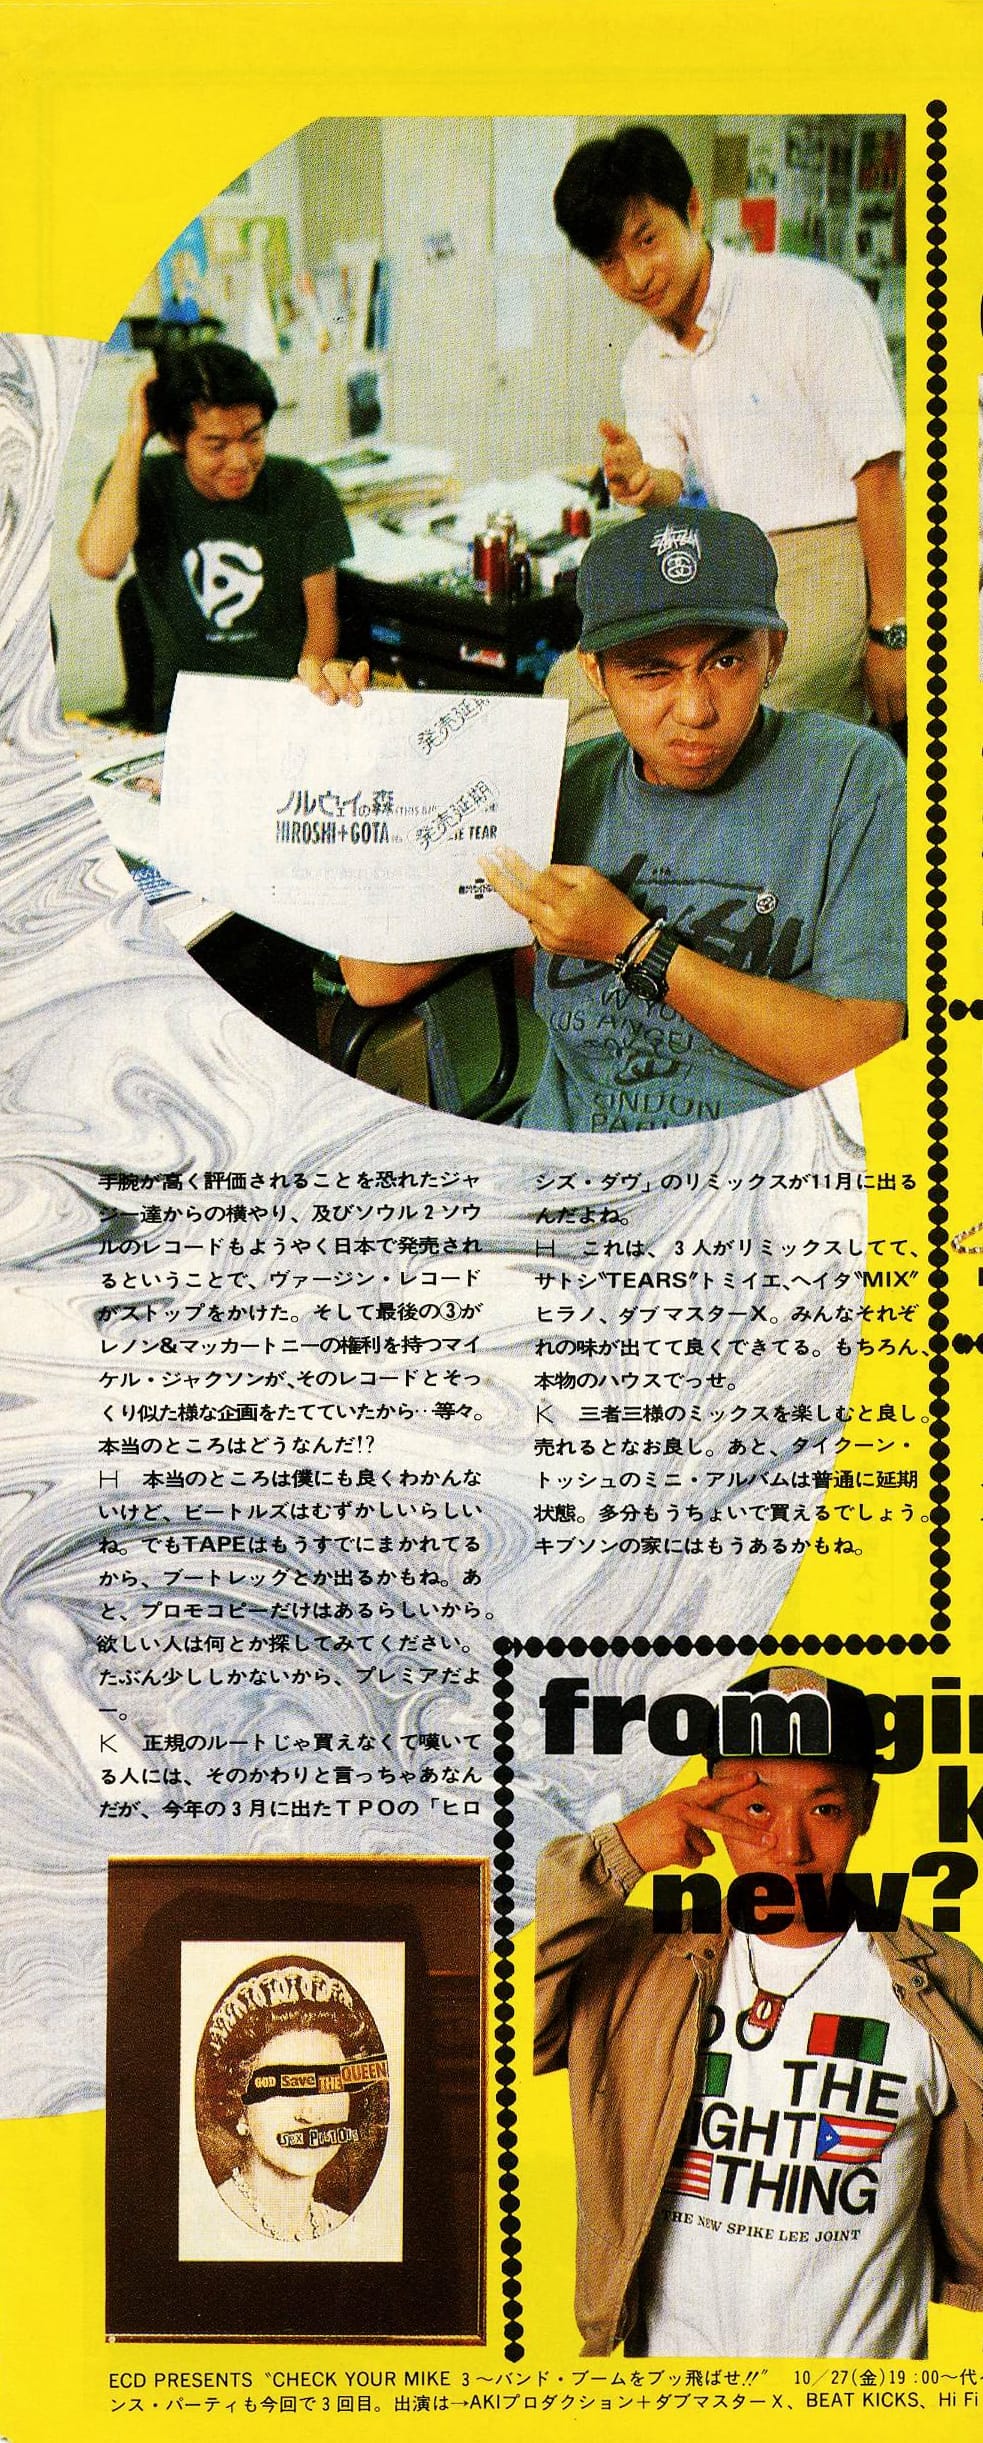 STÜSSY
発売延期
ノルウェイの森
発売延期
HIROSHI+GOTA
TEAR
NEW YORK
LOS ANGELES
LONDON
PARIS
手腕が高く評価されることを恐れたジャ
ジー達からの横やり、及びソウル2ソウ
ルのレコードもようやく日本で発売され
るということで、ヴァージン・レコード
がストップをかけた。そして最後の③が
レノン&マッカートニーの権利を持つマイ
ケル・ジャクソンが、そのレコードとそっ
くり似た様な企画をたてていたから‥等々。
本当のところはどうなんだ!?
H 本当のところは僕にも良くわかんな
いけど、ビートルズはむずかしいらしい
ね。でもTAPEはもうすでにまかれてる
から、ブートレッグとか出るかもね。あ
と、プロモコピーだけはあるらしいから。
欲しい人は何とか探してみてください。
たぶん少ししかないから、プレミアだよ
ー。
K 正規のルートじゃ買えなくて嘆いて
る人には、そのかわりと言っちゃあなん
だが、今年の3月に出たTPOの「ヒロ
シズ・ダヴ」のリミックスが11月に出る
んだよね。
H これは、3人がリミックスしてて、
サトシ〝TEARS〟トミイエ、ヘイタ〝MIX〟
ヒラノ、ダブマスターX。みんなそれぞ
れの味が出てて良くできてる。もちろん、
本物のハウスでっせ。
K 三者三様のミックスを楽しむと良し。
売れるとなお良し。あと、タイクーン・
トッシュのミニ・アルバムは普通に延期
状態。多分もうちょいで買えるでしょう。
キブソンの家にはもうあるかもね。
from gi
K
new?
GOD Save THE QUEEN
Sex PISTOLS
DO
THE
RIGHT
THING
THE NEW SPIKE LEE JOINT
ECD PRESENTS 〝CHECK YOUR MIKE 3～バンド・ブームをブッ飛ばせ!!〟 10／27(金)19:00～代
ンス・パーティも今回で3回目。出演は→AKIプロダクション＋ダブマスターX、BEAT KICKS、Hi Fi